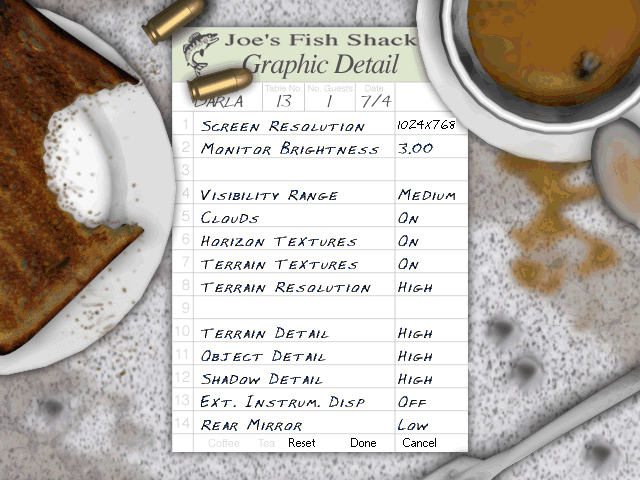 Joe's Fish Shack
Graphic Detail
Table No. No. Guests Date
DARLA 13 1 7/4
1 SCREEN RESOLUTION 1024X768
2 MONITOR BRIGHTNESS 3.00
3
4 VISIBILITY RANGE MEDIUM
5 CLOUDS ON
6 HORIZON TEXTURES ON
7 TERRAIN TEXTURES ON
8 TERRAIN RESOLUTION HIGH
9
10 TERRAIN DETAIL HIGH
11 OBJECT DETAIL HIGH
12 SHADOW DETAIL HIGH
13 EXT. INSTRUM. DISP OFF
14 REAR MIRROR LOW
Coffee Tea Reset Done Cancel